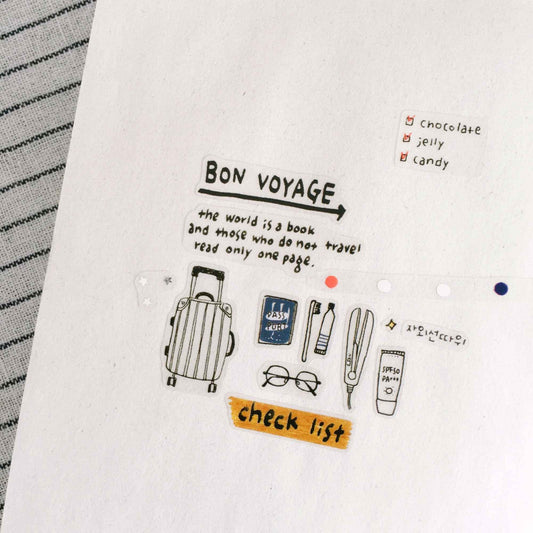 chocolate
jelly
candy
BON VOYAGE
the world is a book
and those who do not travel
read only one page.
PASS
PORT
자외선따위
SPF50
PA+++
check list